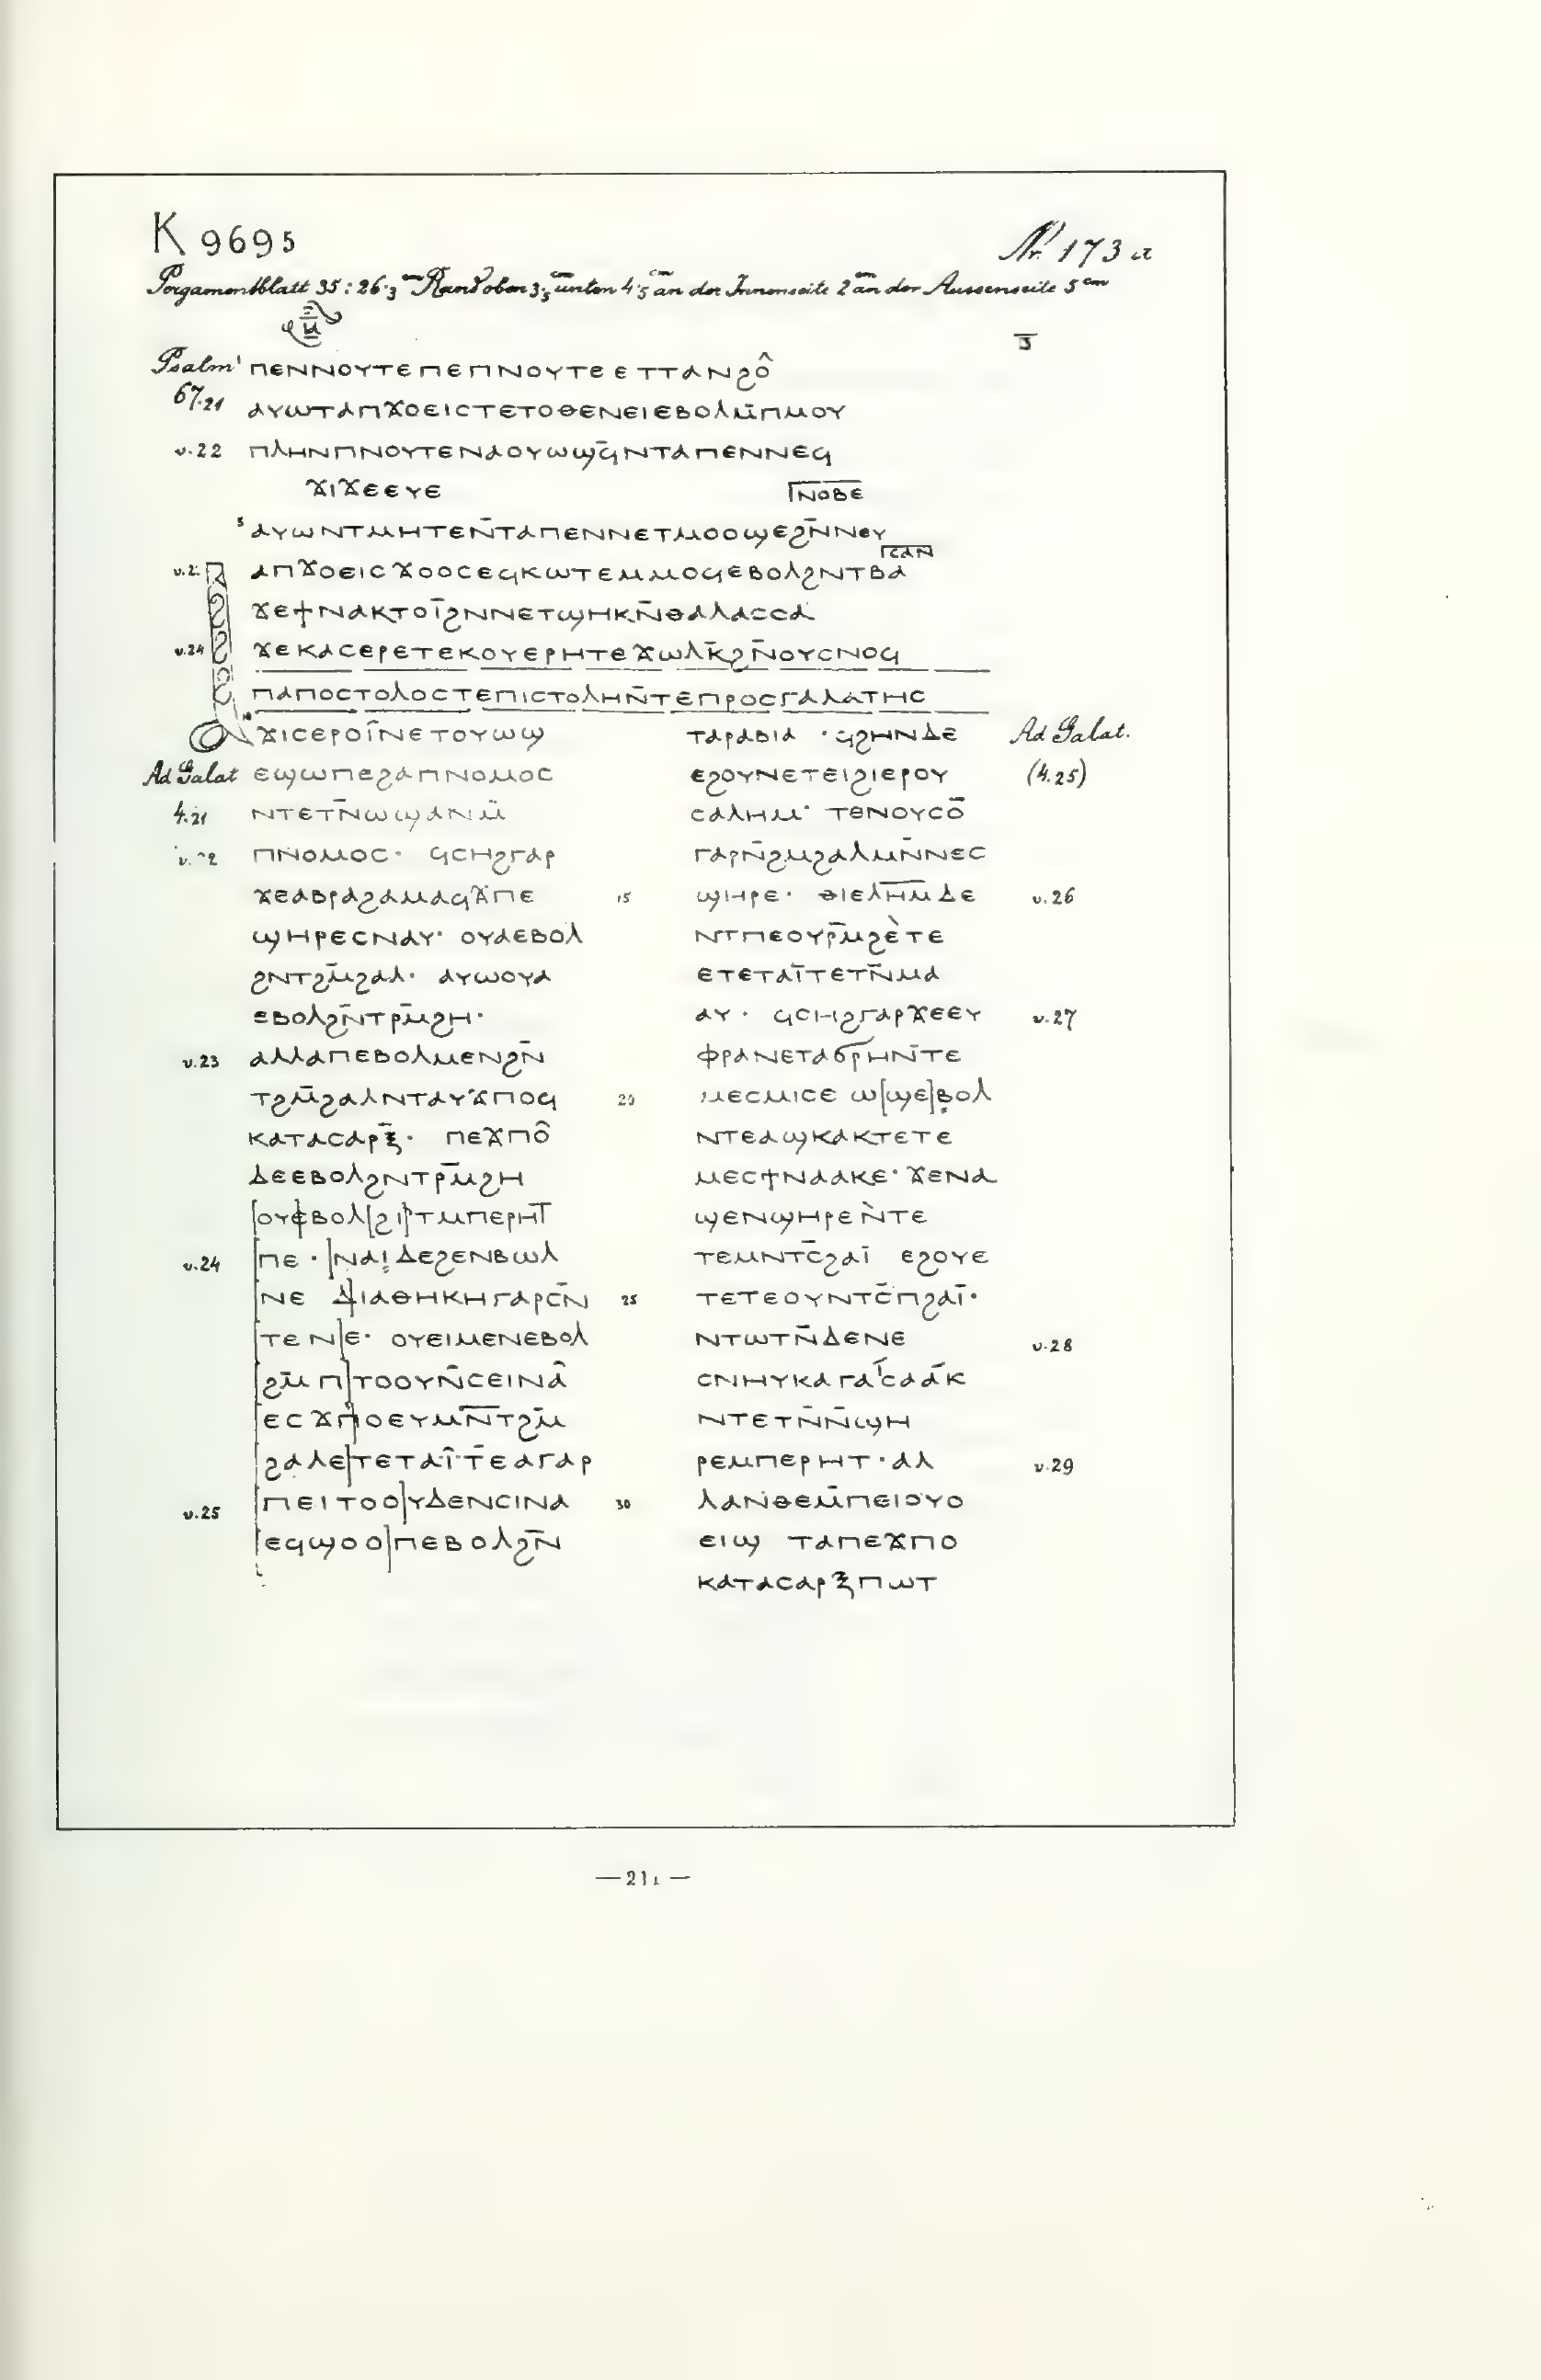 K 9695
Nr. 173 a
Pergamentblatt 35 : 26·3 cm Rand oben 3·5 cm unten 4·5 cm an der Innenseite 2 cm an der Aussenseite 5 cm
Psalm 1 ⲡⲉⲛⲛⲟⲩⲧⲉⲡⲉⲡⲛⲟⲩⲧⲉⲉⲧⲧⲁⲛϩⲟ̂
67.21 ⲁⲩⲱⲧⲁⲡϫⲟⲉⲓⲥⲧⲉⲧⲟⲑⲉⲛⲉⲓⲉⲃⲟⲗⲙ̄ⲡⲙⲟⲩ
v.22 ⲡⲗⲏⲛⲡⲛⲟⲩⲧⲉⲛⲁⲟⲩⲱϣϥ̄ⲛⲧⲁⲡⲉⲛⲛⲉϥ
ϫⲓϫⲉⲉⲩⲉ ⲛⲟⲃⲉ
5 ⲁⲩⲱⲛⲧⲙⲏⲧⲉⲛ̄ⲧⲁⲡⲉⲛⲛⲉⲧⲙⲟⲟϣⲉϩⲛ̄ⲛⲉⲩ
ⲥⲁⲛ
ⲁⲡϫⲟⲉⲓⲥϫⲟⲟⲥⲉϥⲕⲱⲧⲉⲙⲙⲟϥⲉⲃⲟⲗϩⲛⲧⲃⲁ
ϫⲉϯⲛⲁⲕⲧⲟⲓ̈ϩⲛⲛⲉⲧϣⲏⲕⲛ̄ⲑⲁⲗⲁⲥⲥⲁ
v.24 ϫⲉⲕⲁⲥⲉⲣⲉⲧⲉⲕⲟⲩⲉⲣⲏⲧⲉϫⲱⲗⲕ̄ϩⲛ̄ⲟⲩⲥⲛⲟϥ
ⲡⲁⲡⲟⲥⲧⲟⲗⲟⲥⲧⲉⲡⲓⲥⲧⲟⲗⲏⲛ̄ⲧⲉⲡⲣⲟⲥⲅⲁⲗⲁⲧⲏⲥ
10 ⲁϫⲓⲥⲉⲣⲟⲓ̈ⲛⲉⲧⲟⲩⲱϣ
Ad Galat ⲉϣⲱⲡⲉϩⲁⲡⲛⲟⲙⲟⲥ
4.21 ⲛⲧⲉⲧⲛ̄ⲱϣⲁⲛⲙ̄
ⲡⲛⲟⲙⲟⲥ· ϥⲥⲏϩⲅⲁⲣ
ϫⲉⲁⲃⲣⲁϩⲁⲙⲁϥϫⲡⲉ
ϣⲏⲣⲉⲥⲛⲁⲩ· ⲟⲩⲁⲉⲃⲟⲗ
ϩⲛⲧϩⲙ̄ϩⲁⲗ· ⲁⲩⲱⲟⲩⲁ
ⲉⲃⲟⲗϩⲛ̄ⲧⲣⲙ̄ϩⲏ·
v.23 ⲁⲗⲗⲁⲡⲉⲃⲟⲗⲙⲉⲛϩⲛ̄
ⲧϩⲙ̄ϩⲁⲗⲛⲧⲁⲩϫⲡⲟϥ
ⲕⲁⲧⲁⲥⲁⲣⲝ̄· ⲡⲉϫⲡⲟ̂
ⲇⲉⲉⲃⲟⲗϩⲛⲧⲣⲙ̄ϩⲏ
[ⲟⲩⲉⲃⲟⲗ[ϩⲓ]ⲧⲙⲡⲉⲣⲏⲧ̄
v.24 [ⲡⲉ · ]ⲛⲁⲓ ⲇⲉϩⲉⲛⲃⲱⲗ
[ⲛⲉ ⲇ]ⲓⲁⲑⲏⲕⲏⲅⲁⲣⲥⲛ̄
[ⲧⲉ ⲛ]ⲉ· ⲟⲩⲉⲓⲙⲉⲛⲉⲃⲟⲗ
[ϩⲙ̄ ⲡ]ⲧⲟⲟⲩⲛ̄ⲥⲉⲓⲛⲁ̂
[ⲉⲥϫⲡ]ⲟⲉⲩⲙⲛ̄ⲧϩⲙ̄
[ϩⲁⲗⲉ]ⲧⲉⲧⲁⲓ̈ⲧⲉⲁⲅⲁⲣ
v.25 [ⲡⲉⲓⲧⲟⲟ]ⲩⲇⲉⲛⲥⲓⲛⲁ
[ⲉϥϣⲟⲟ]ⲡⲉⲃⲟⲗϩⲛ̄
ⲧⲁⲣⲁⲃⲓⲁ · ϥϩⲏⲛⲇⲉ Ad Galat.
ⲉϩⲟⲩⲛⲉⲧⲉⲓϩⲓⲉⲣⲟⲩ (4.25)
ⲥⲁⲗⲏⲙ· ⲧⲉⲛⲟⲩⲥⲟ̄
ⲅⲁⲣⲛ̄ϩⲙϩⲁⲗⲙⲛ̄ⲛⲉⲥ
15 ϣⲏⲣⲉ· ⲑⲓⲉⲗⲏ̄ⲙ̄ⲇⲉ v.26
ⲛⲧⲡⲉⲟⲩⲣⲙ̄ϩⲉ̀ⲧⲉ
ⲉⲧⲉⲧⲁⲓ̈ⲧⲉⲧⲛ̄ⲙⲁ
ⲁⲩ · ϥⲥⲏϩⲅⲁⲣϫⲉⲉⲩ v.27
ⲫⲣⲁⲛⲉⲧⲁϭⲣⲏⲛ̄ⲧⲉ
20 ⲙⲉⲥⲙⲓⲥⲉ ⲱ[ϣⲉ]ⲃⲟⲗ
ⲛⲧⲉⲁϣⲕⲁⲕⲧⲉⲧⲉ
ⲙⲉⲥϯⲛⲁⲁⲕⲉ· ϫⲉⲛⲁ
ϣⲉⲛϣⲏⲣⲉⲛ̀ⲧⲉ
ⲧⲉⲙⲛⲧⲥ̄ϩⲁⲓ̈ ⲉϩⲟⲩⲉ
25 ⲧⲉⲧⲉⲟⲩⲛⲧⲥ̄ⲡϩⲁⲓ̈·
ⲛⲧⲱⲧⲛ̄ⲇⲉⲛⲉ v.28
ⲥⲛⲏⲩⲕⲁⲧⲁⲓ̈ⲥⲁⲁⲕ
ⲛⲧⲉⲧⲛ̄ⲛ̄ϣⲏ
ⲣⲉⲙⲡⲉⲣⲏⲧ·ⲁⲗ v.29
30 ⲗⲁⲛⲑⲉⲙ̄ⲡⲉⲓⲟⲩⲟ
ⲉⲓϣ ⲧⲁⲡⲉϫⲡⲟ
ⲕⲁⲧⲁⲥⲁⲣⲝⲡⲱⲧ
— 211 —